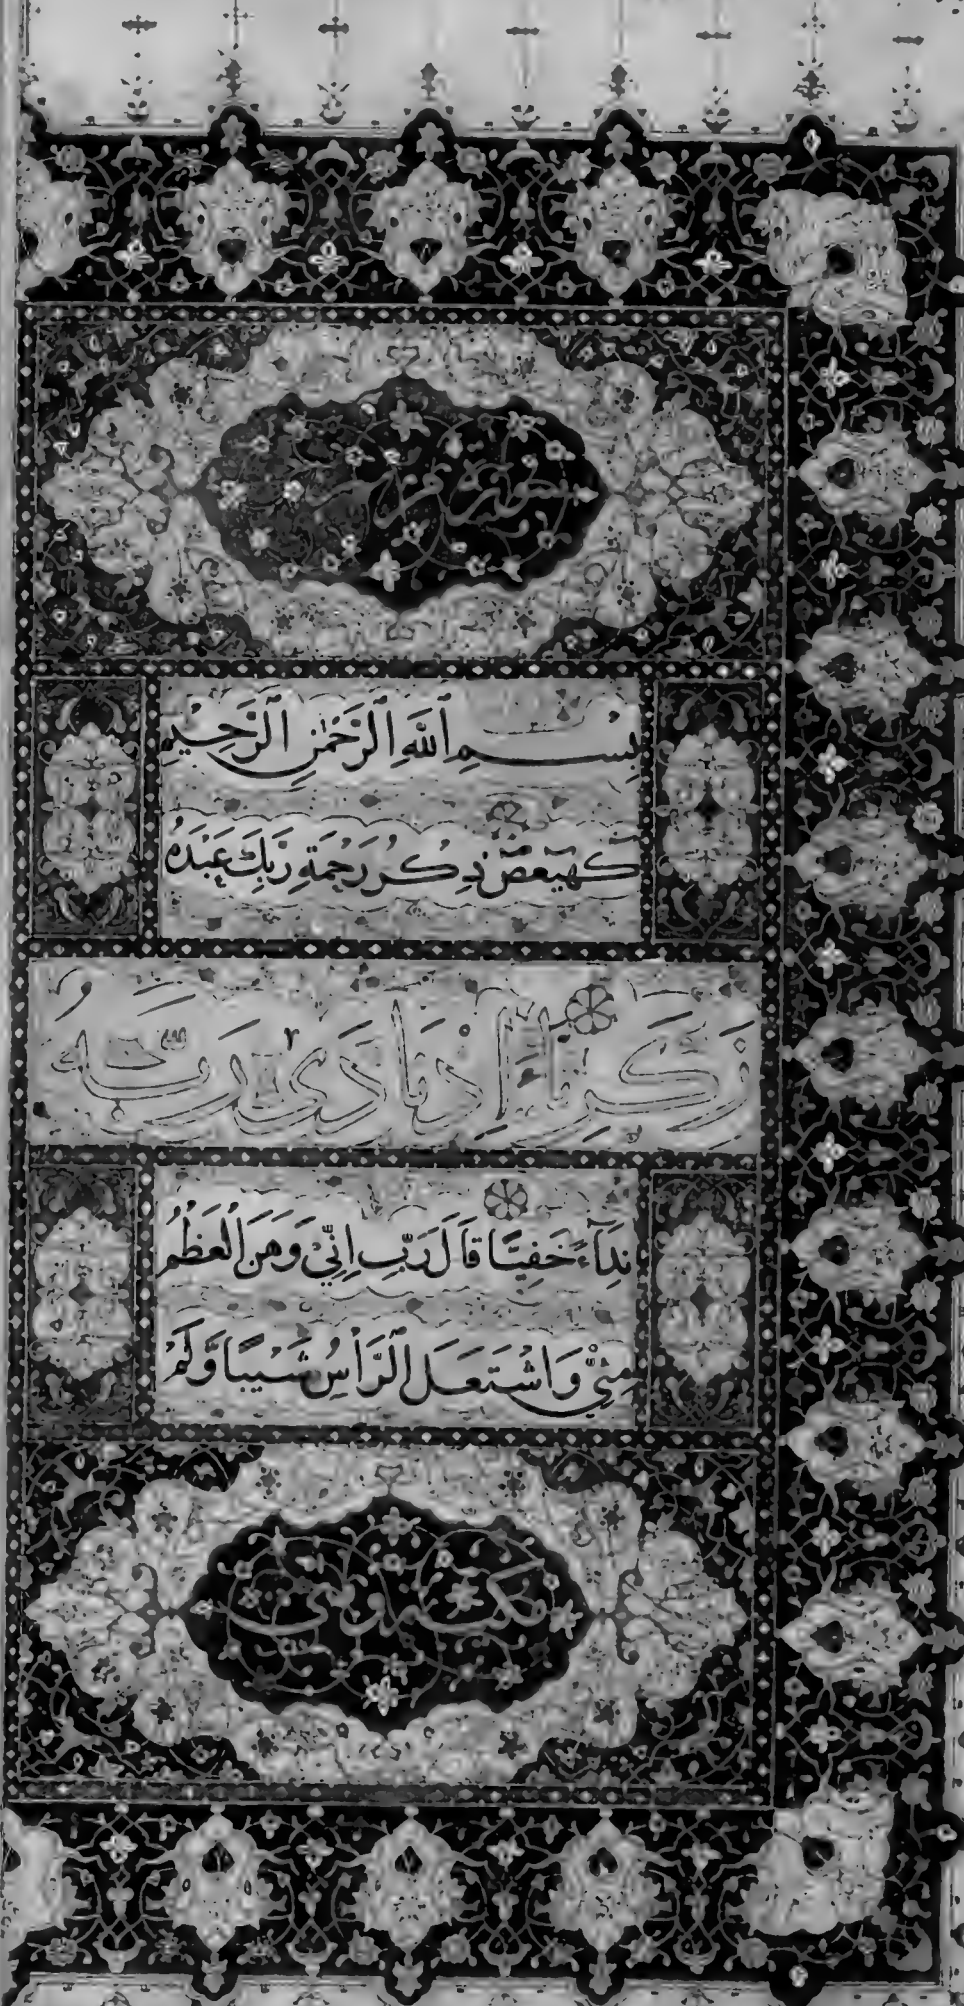 سورة مريم
بِسْمِ ٱللَّهِ ٱلرَّحْمٰنِ ٱلرَّحِيْمِ
كٓهٰيٰعٓصٓ ذِكْرُ رَحْمَةِ رَبِّكَ عَبْدَهُ
زَكَرِيَّاءَ إِذْ نَادَىٰ رَبَّهُ
نِدَآءً خَفِيًّا قَالَ رَبِّ اِنِّيْ وَهَنَ الْعَظْمُ
مِنِّيْ وَاشْتَعَلَ ٱلرَّأْسُ شَيْبًا وَّلَمْ
مكية وهي